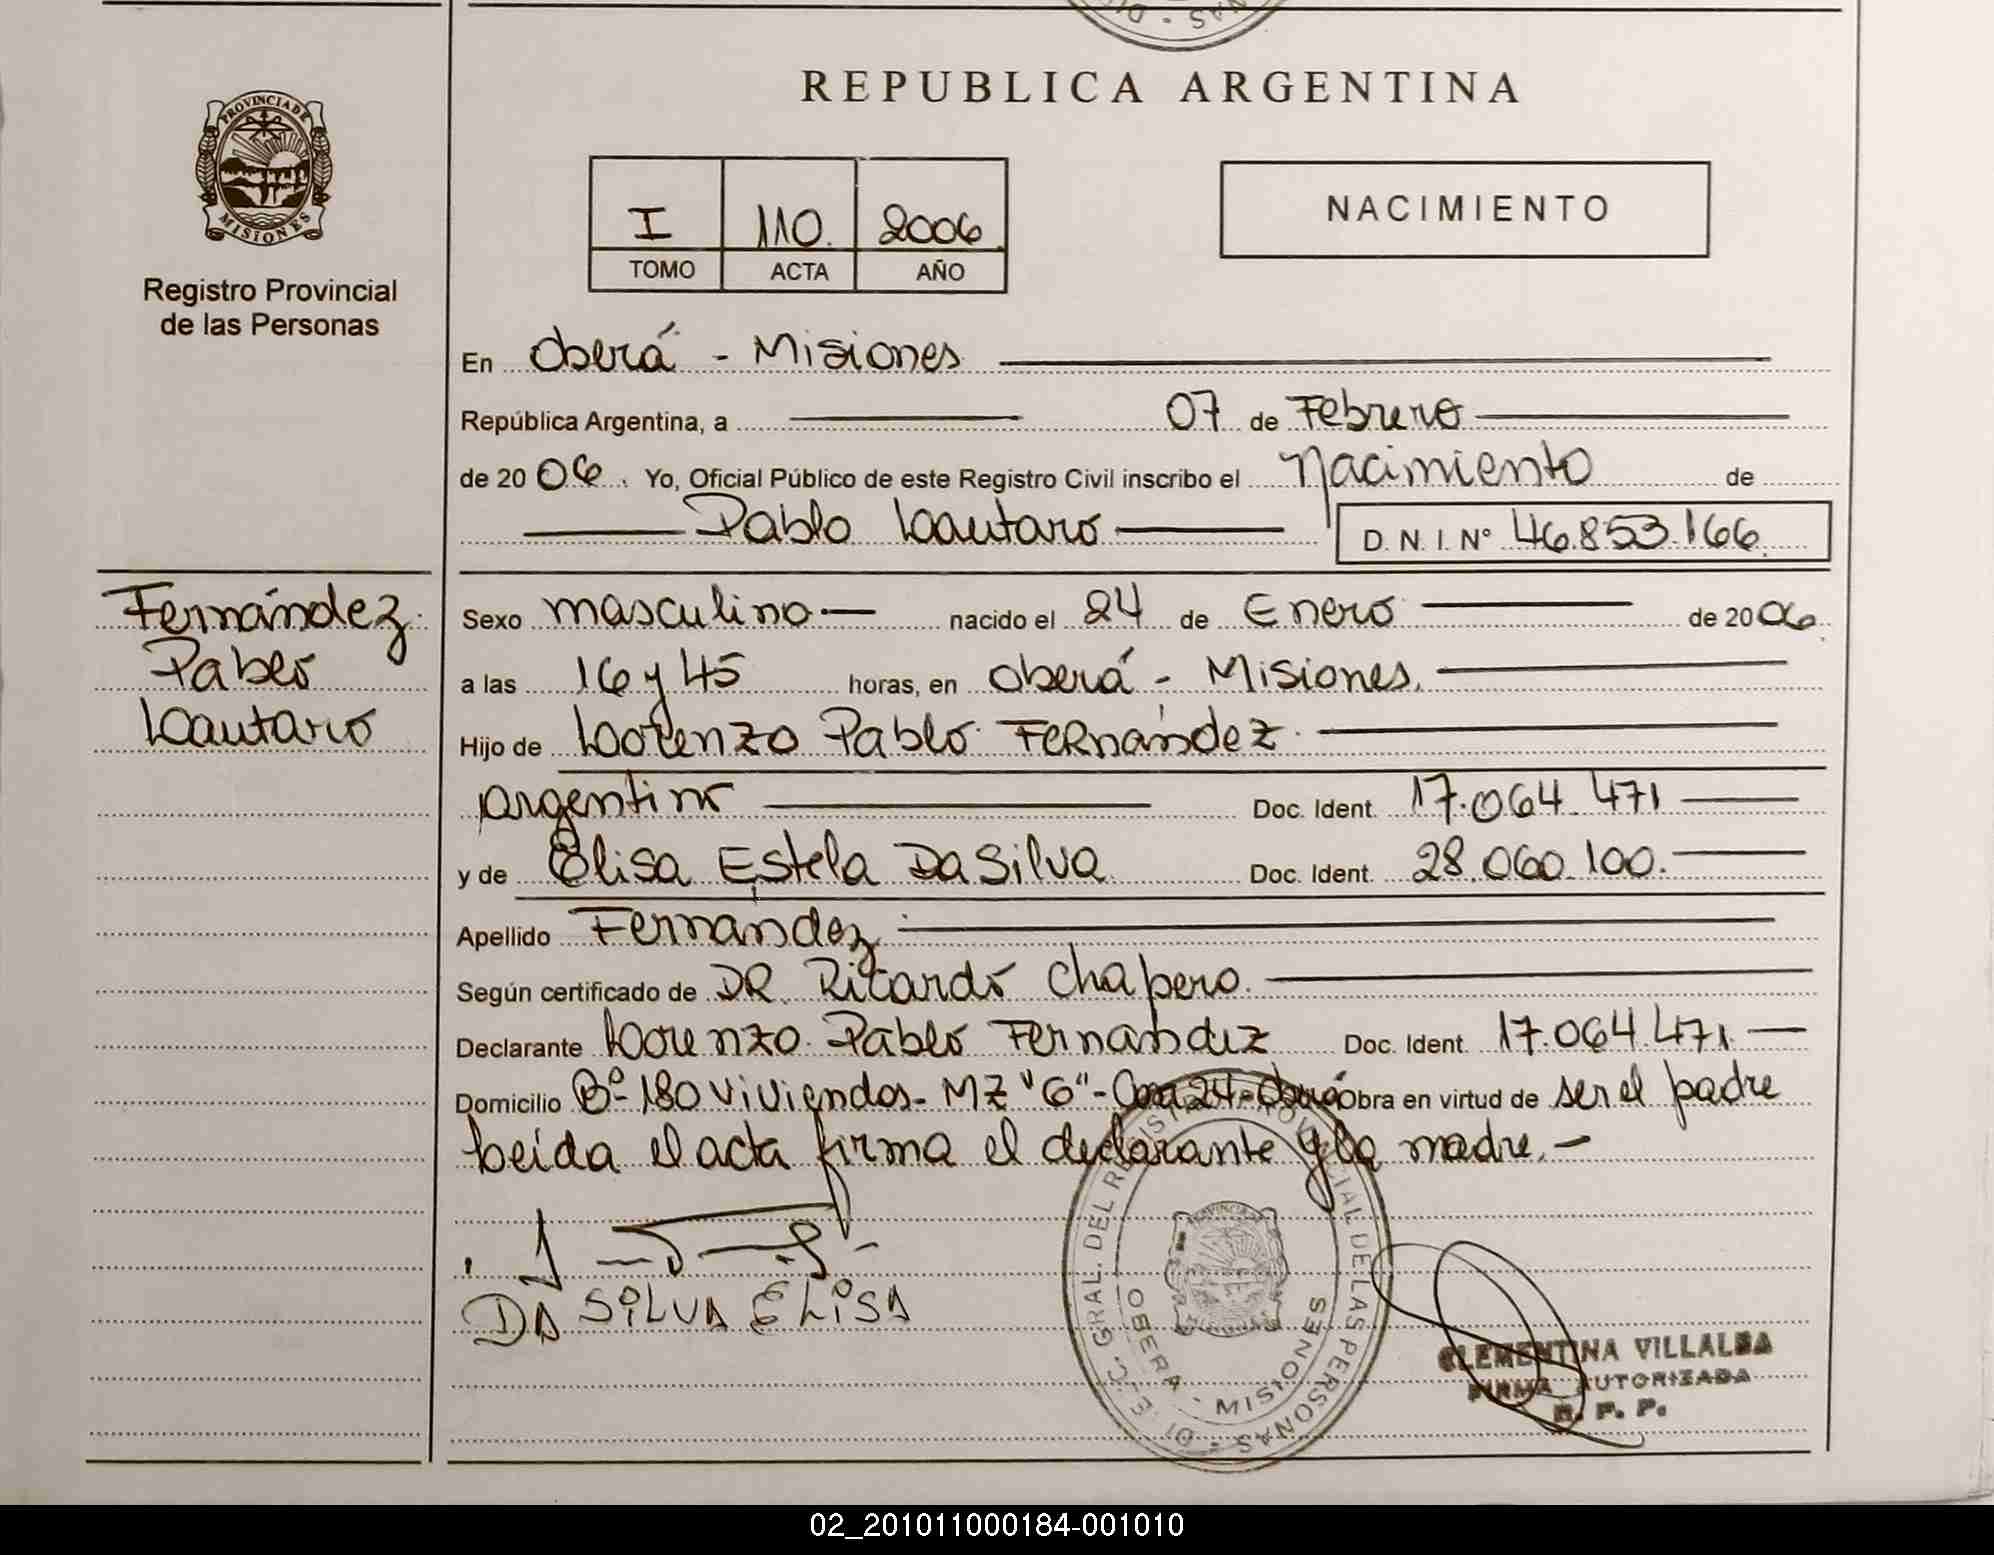 REPUBLICA ARGENTINA
PROVINCIA DE
MISIONES
Registro Provincial
de las Personas
I 110. 2006
TOMO ACTA AÑO
NACIMIENTO
En Oberá - Misiones
República Argentina, a 07 de Febrero
de 2006. Yo, Oficial Público de este Registro Civil inscribo el Nacimiento de
Pablo Lautaro D. N. I. Nº 46.853.166
Fernández
Pablo
Lautaro
Sexo masculino nacido el 24 de Enero de 2006
a las 16 y 45 horas, en Oberá - Misiones.
Hijo de Lorenzo Pablo Fernández
argentino Doc. Ident. 17.064.471
y de Elisa Estela Da Silva Doc. Ident. 28.060.100.
Apellido Fernández
Según certificado de DR. Ricardo Chapero.
Declarante Lorenzo Pablo Fernández Doc. Ident. 17.064.471
Domicilio Bº 180 Viviendas - MZ "G" - Casa 24 - Oberá Obra en virtud de ser el padre
Leída el acta firma el declarante y la madre. -
DA SiLVA ELiSA
DI . GRAL. DEL REGISTRO PROVINCIAL DE LAS PERSONAS
OBERA - MISIONES
CLEMENTINA VILLALBA
FIRMA AUTORIZADA
R. P. P.
02_201011000184-001010